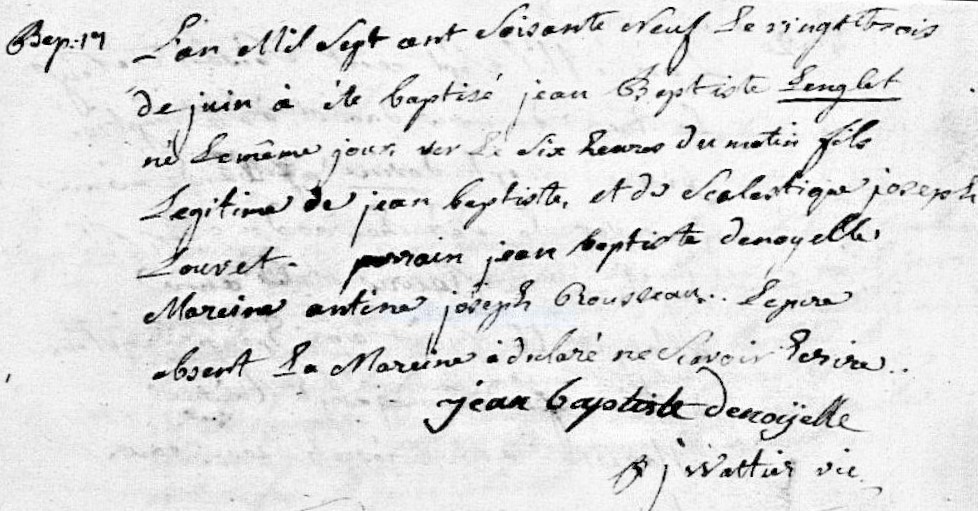 Bap: 17
L'an Mil Sept cent Soisante Neuf Le vingt trois
de juin à été baptisé jean Baptiste Lenglet
né Le même jour ver Le Six heures du matin fils
Legitime de jean baptiste, et de Scalastique joseph
Louvet. parain jean baptiste denoyelle
Mareine antine joseph Brousseau.. Le pere
absent La Mareine à déclaré ne Scavoir Ecrire..
jean baptiste denoÿelle
j Wattier vic